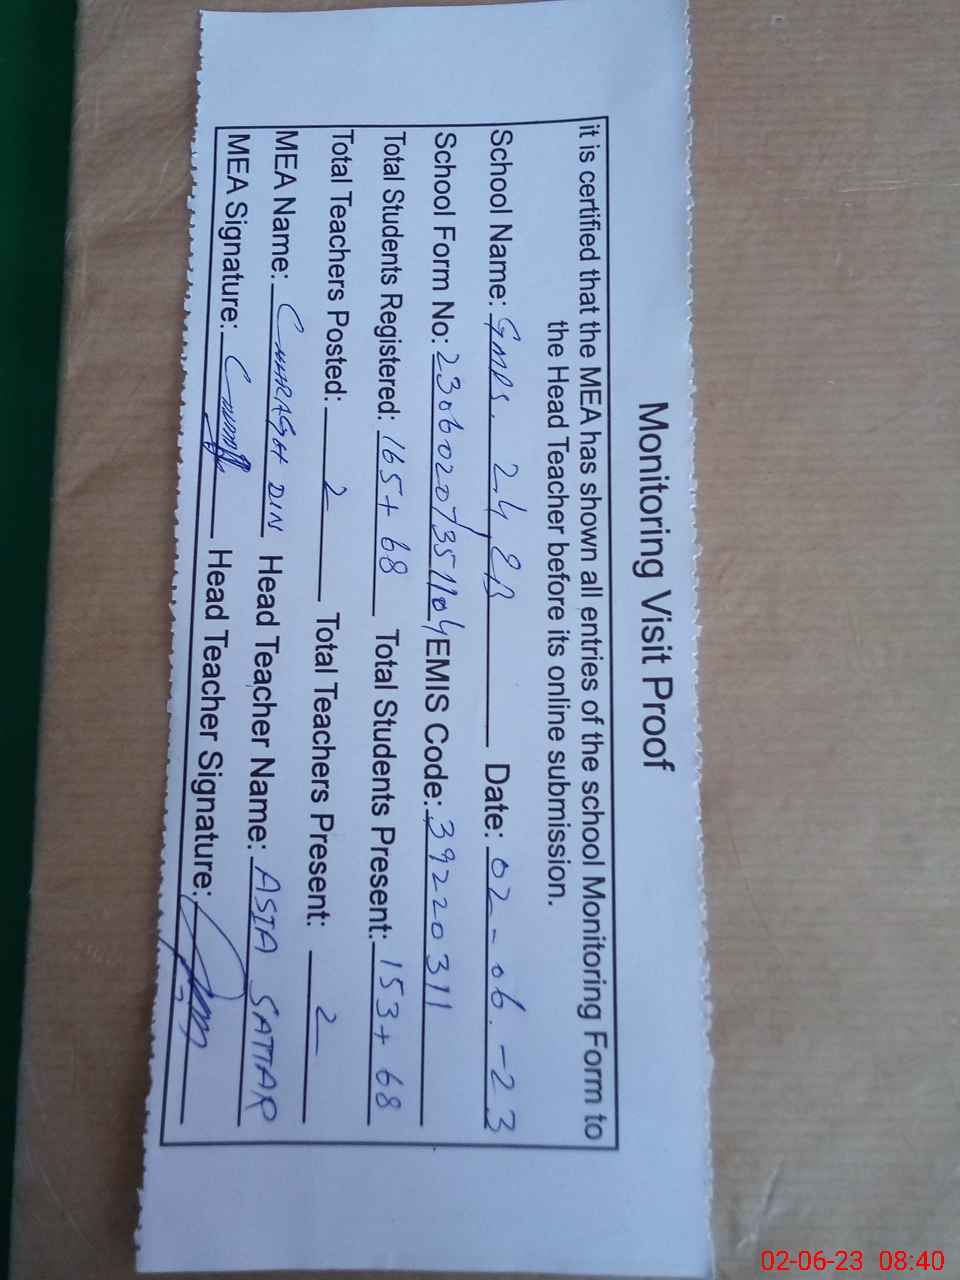 Monitoring Visit Proof
it is certified that the MEA has shown all entries of the school Monitoring Form to
the Head Teacher before its online submission.
School Name: GMPS. 24 8B Date: 02-06.-23
School Form No: 23060207351104 EMIS Code: 39220311
Total Students Registered: 165+68 Total Students Present: 153+68
Total Teachers Posted: 2 Total Teachers Present: 2
MEA Name: DIN Head Teacher Name: ASIA SATTAR
MEA Signature: Head Teacher Signature:
02-06-23 08:40